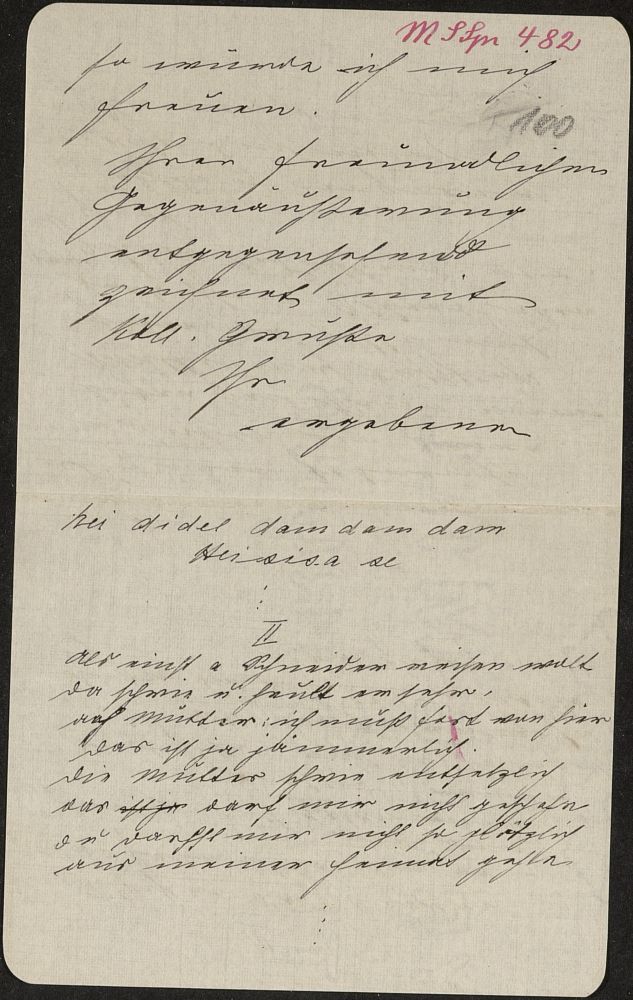 M S Spr 482
so würde ich mich
freuen.
100
Ihrer freundlichen
Gegenäußerung
entgegensehend
zeichnet mit
koll. Gruße
Ihr
ergebener
hei didel dam dam dam
Heisisa se
II
Als einst a Schneider reisen wolt
da schrie u. heult er sehr,
ach Mutter: ich muß fort von hier
das ist ja jämmerlich.
Die Mutter schrie entsetzlich
das ist ja darf mir nicht geschehn
du darfst mir nicht so plötzlich
aus meiner Heimat gehn